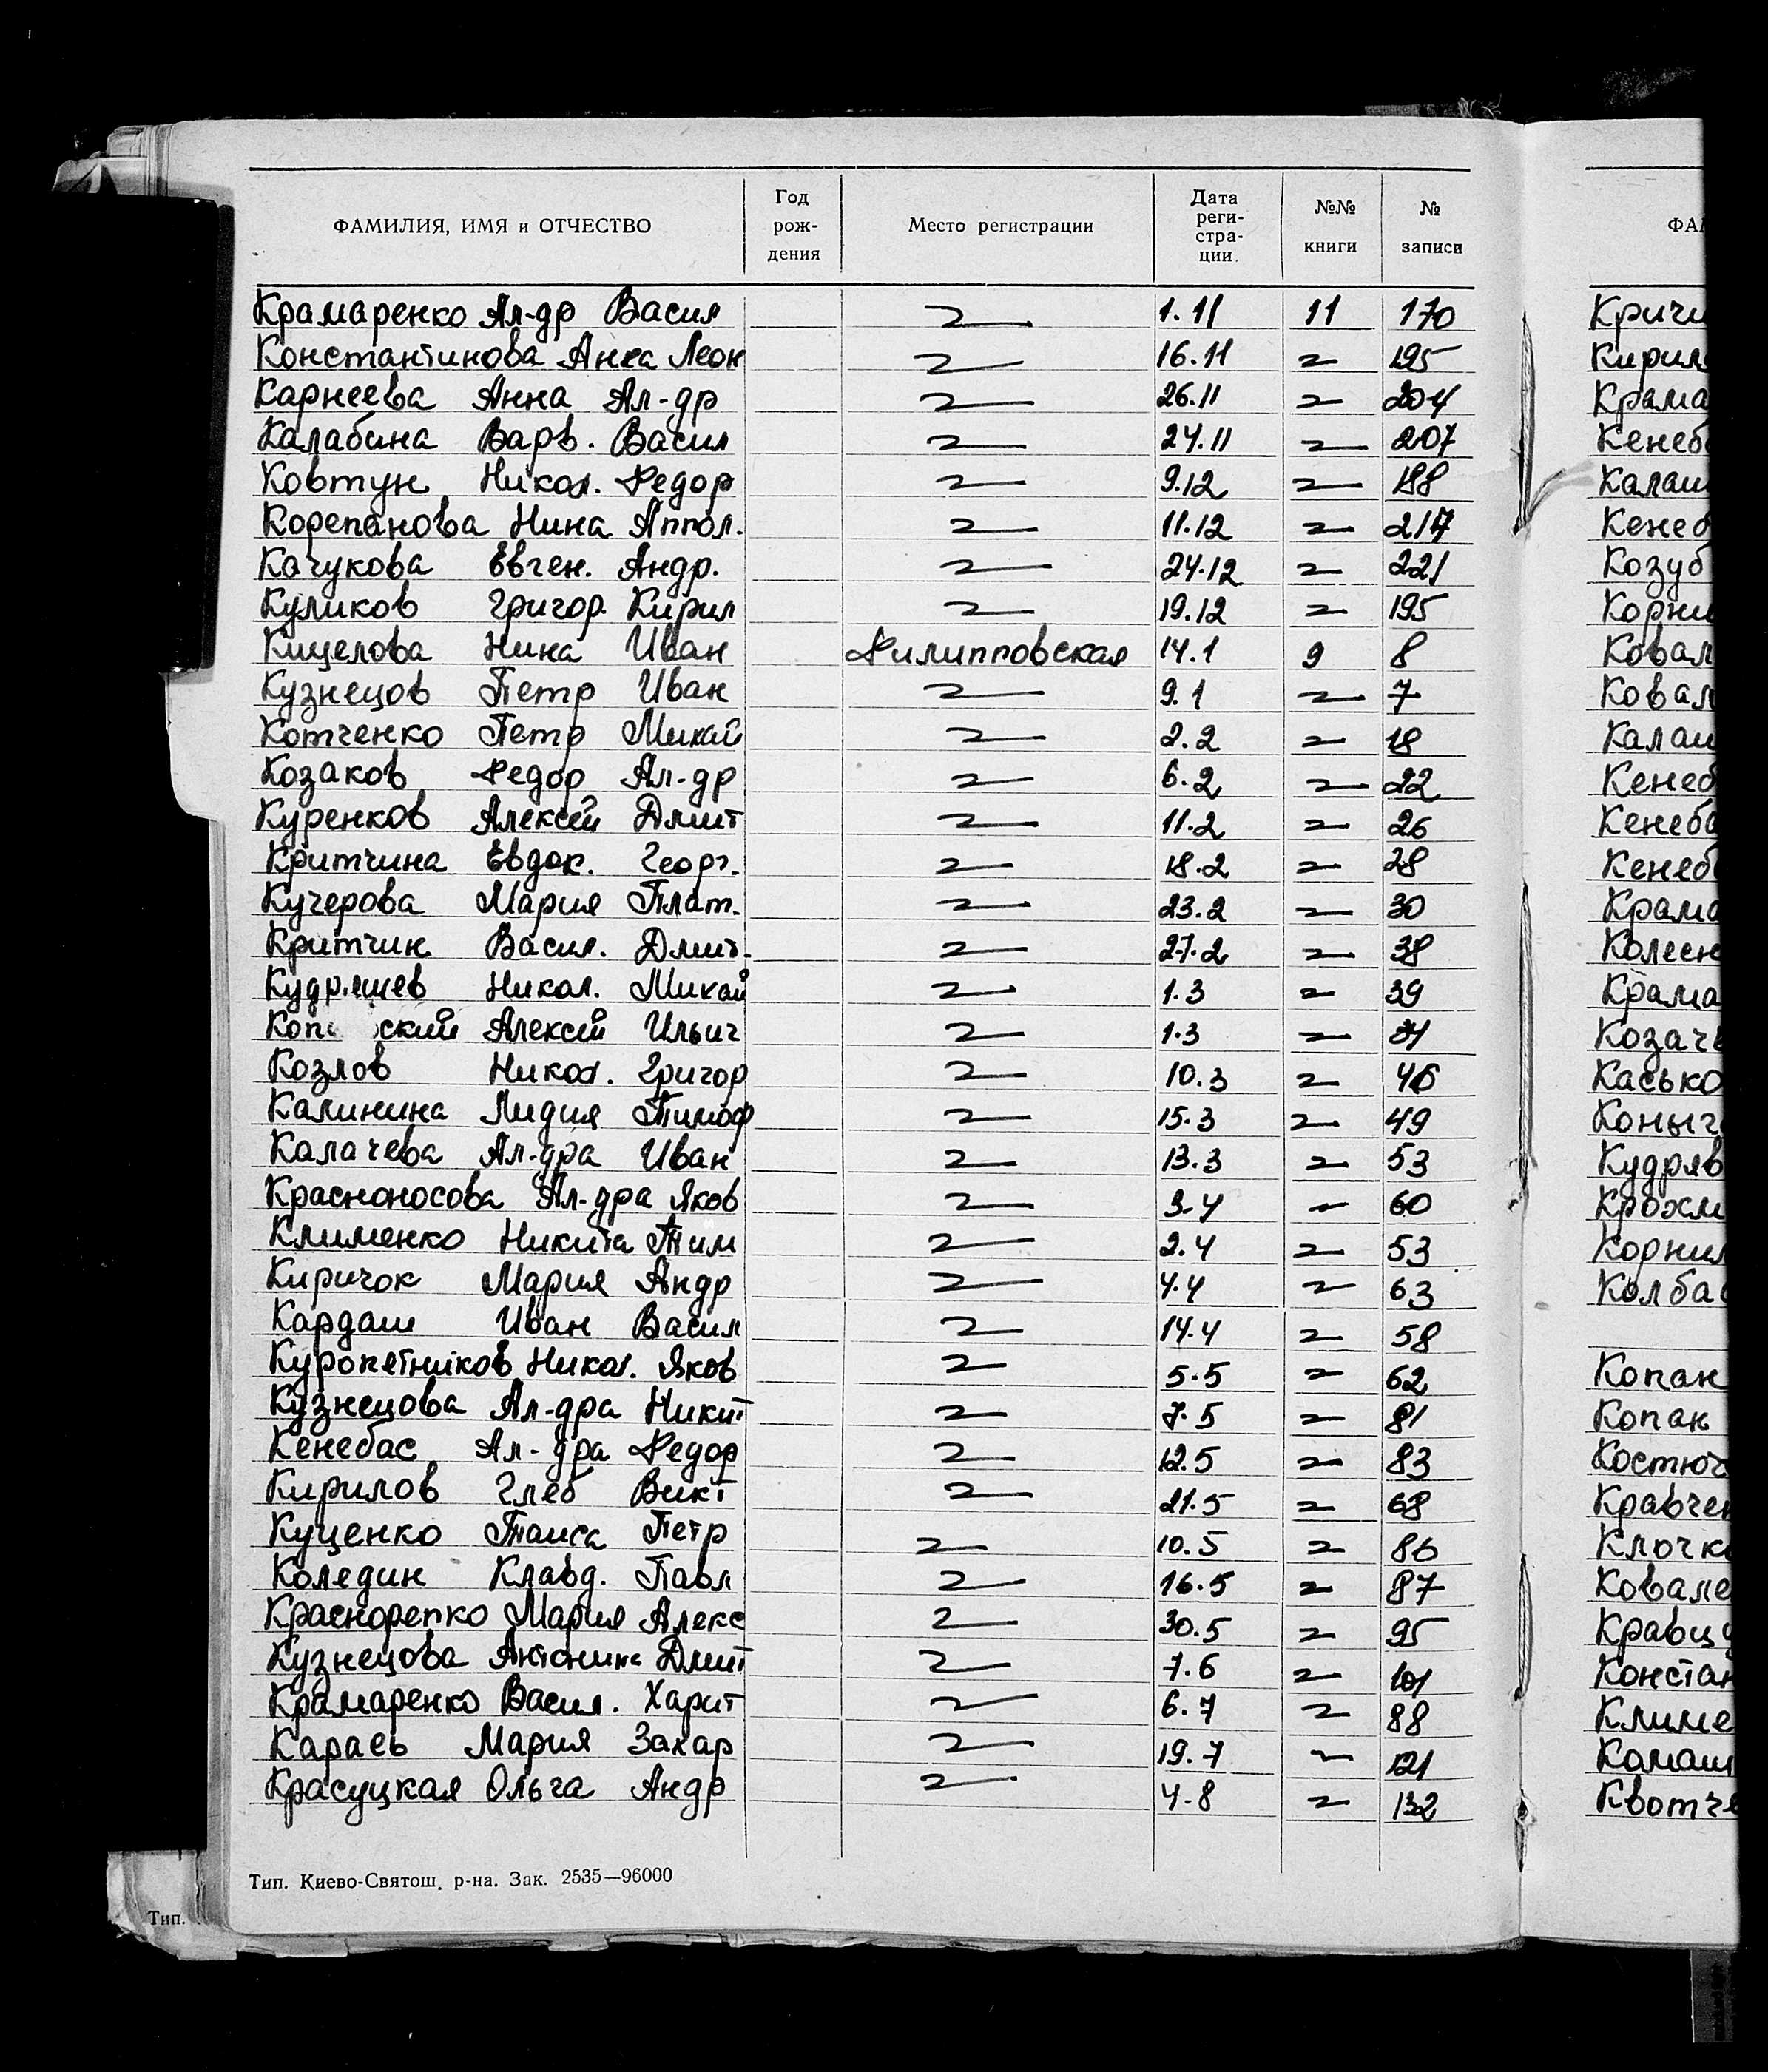 ФАМИЛИЯ, ИМЯ и ОТЧЕСТВО Год рож- дения Место регистрации Дата реги- стра- ции. №№ книги № записи
Крамаренко Ал-др Васил 〃 1.11 11 170
Константинова Анна Леон 〃 16.11 〃 195
Карнеева Анна Ал-др 〃 26.11 〃 204
Калабина Варв. Васил 〃 24.11 〃 207
Ковтун Никол. Федор 〃 9.12 〃 188
Корепанова Нина Аппол. 〃 11.12 〃 217
Качукова Евген. Андр. 〃 24.12 〃 221
Куликов Григор. Кирил 〃 19.12 〃 195
Кицелова Нина Иван Филипповская 14.1 9 8
Кузнецов Петр Иван 〃 9.1 〃 7
Котченко Петр Михай 〃 2.2 〃 18
Козаков Федор Ал-др 〃 6.2 〃 22
Куренков Алексей Дмит 〃 11.2 〃 26
Критчина Евдок. Георг. 〃 18.2 〃 28
Кучерова Мария Плат. 〃 23.2 〃 30
Критчин Васил. Дмит. 〃 27.2 〃 38
Кудряшев Никол. Михай 〃 1.3 〃 39
Алексей Ильич 〃 1.3 〃
Козлов Никол. Григор 〃 10.3 〃 46
Калинина Лидия Тимоф 〃 15.3 〃 49
Калачева Ал-дра Иван 〃 13.3 〃 53
Красноносова Ал-дра Яков 〃 3.4 〃 60
Клименко Никита Тим 〃 2.4 〃 53
Киричок Мария Андр 〃 4.4 〃 63
Кардаш Иван Васил 〃 14.4 〃 58
Куропетников Никол. Яков 〃 5.5 〃 62
Кузнецова Ал-дра Никит 〃 7.5 〃 81
Кенебас Ал-дра Федор 〃 12.5 〃 83
Кирилов Глеб Викт 〃 21.5 〃 68
Куценко Таиса Петр 〃 10.5 〃 86
Коледин Клавд. Павл 〃 16.5 〃 87
Краснорепко Мария Алекс 〃 30.5 〃 95
Кузнецова Антонина Дмит 〃 7.6 〃 101
Крамаренко Васил. Харит 〃 6.7 〃 88
Караев Мария Захар 〃 19.7 〃 121
Красуцкая Ольга Андр 〃 4.8 〃 132
Тип. Киево-Святош. р-на. Зак. 2535—96000
Тип.